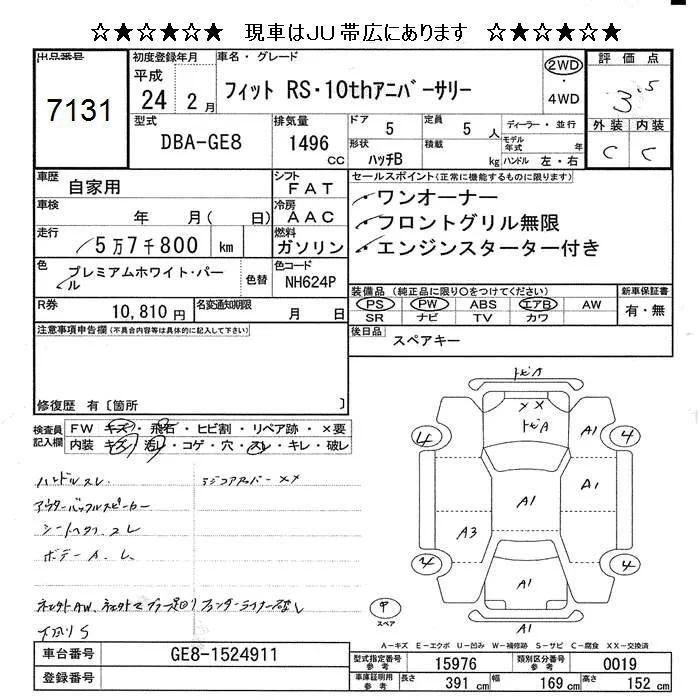 ☆★☆★☆★ 現車はJU帯広にあります ☆★☆★☆★
出品番号
7131
初度登録年月
平成
24 年 2 月
車名・グレード
フィット RS・10thアニバーサリー
2WD
・
4WD
評価点
3.5
外装 内装
C C
型式
DBA-GE8
排気量
1496 cc
ドア 5
定員 5 人
ディーラー・並行
形状 ハッチB
積載 kg
モデル年式 年
ハンドル 左・右
車歴 自家用
シフト FAT
車検 年 月( 日)
冷房 AAC
走行 5万7千800 km
燃料 ガソリン
色 プレミアムホワイト・パール
色替
色コード NH624P
R券 10,810 円
名変通知期限 月 日
セールスポイント(正常に機能するものに限ります)
・ワンオーナー
・フロントグリル無限
・エンジンスターター付き
装備品 (純正品に限り○をつけてください)
新車保証書
PS PW ABS エアB AW
SR ナビ TV カワ
有・無
後日品 スペアキー
注意事項申告欄(不具合内容等は具体的に記入して下さい)
修復歴 有〔箇所 〕
検査員記入欄
FW キズ・飛石・ヒビ割・リペア跡・×要
内装 キズ・汚レ・コゲ・穴・スレ・キレ・破レ
ハンドルスレ
ラジコアアッパー××
シートヘタリ スレ
ボデーA.L
下廻りS
トビA
××
トビA
A1
A1
A1
A3
A1
A1
4
4
4
4
スペア
A-キズ E-エクボ U-凹み W-補修跡 S-サビ C-腐食 XX-交換済
車台番号 GE8-1524911
登録番号
型式指定番号 参考 15976
類別区分番号 参考 0019
車庫証明用 参考 長さ 391 cm 幅 169 cm 高さ 152 cm